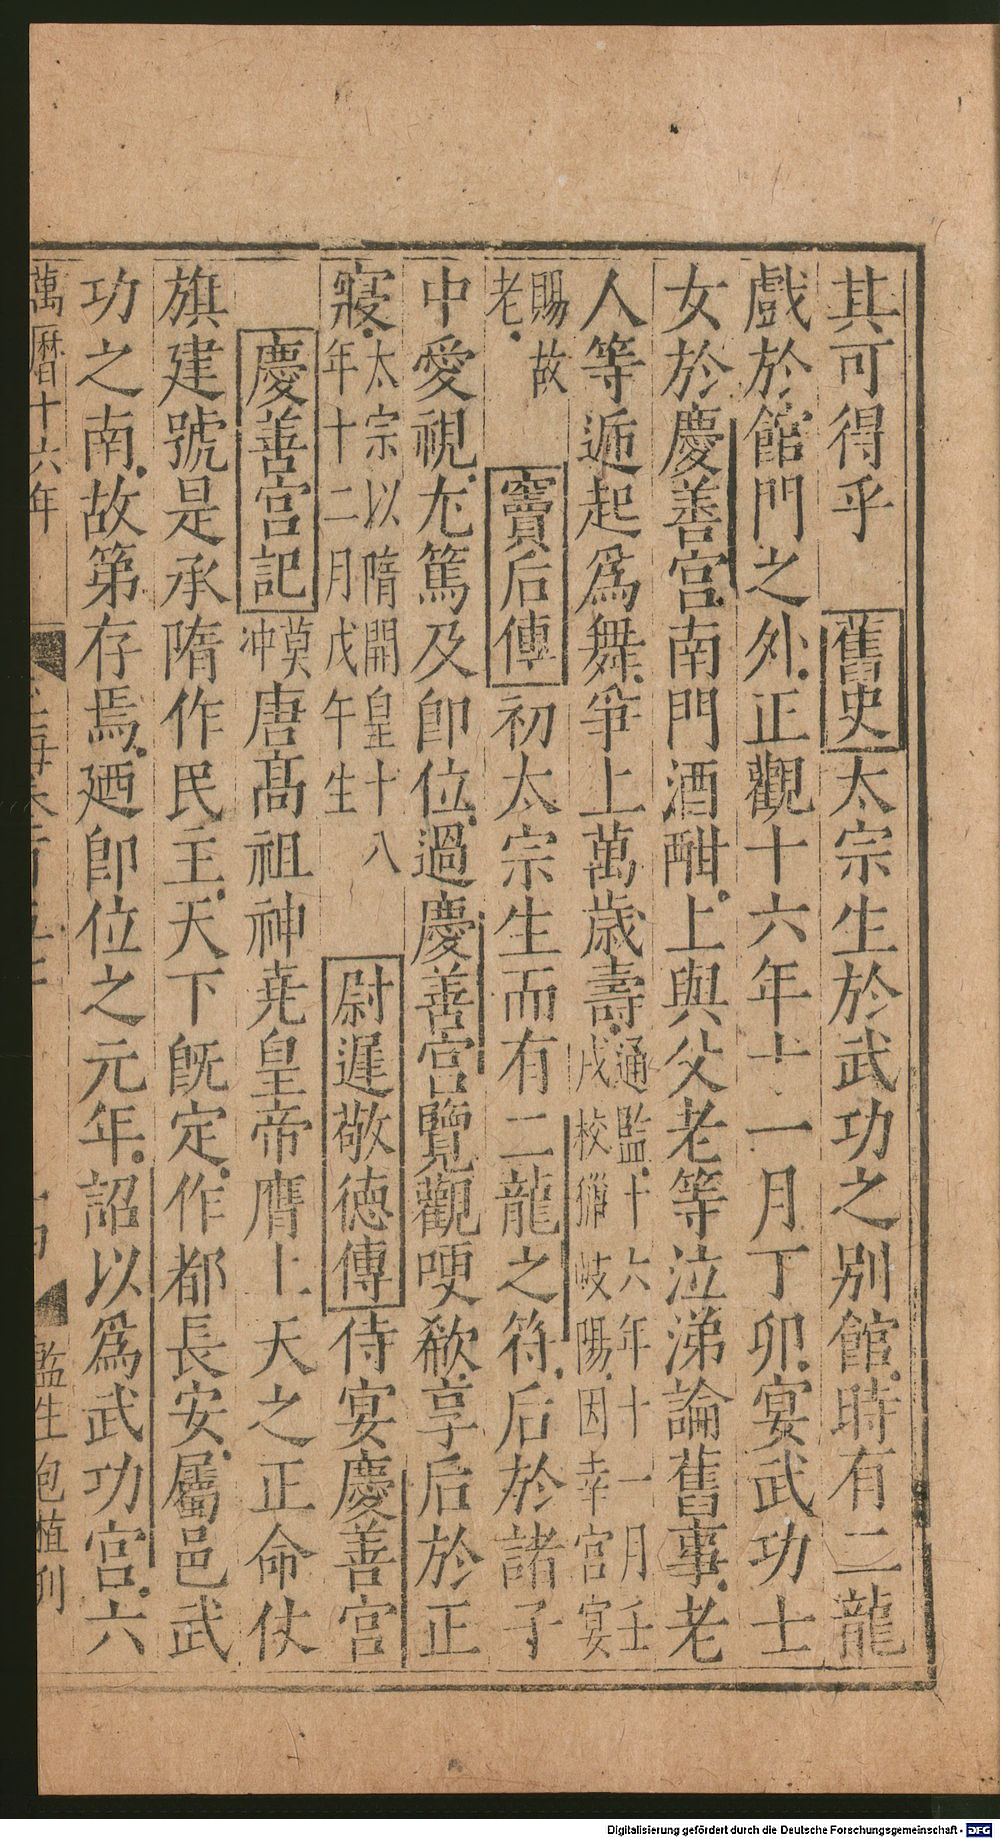 其可得乎舊史太宗生於武功之別館時有二龍
戲於館門之外正觀十六年十一月丁卯宴武功士
女於慶善宮南門酒酣上與父老等泣涕論舊事老
人等遞起為舞爭上萬歲壽通監十六年十一月壬戌校獵岐陽因幸宮宴
賜故老竇后傳初太宗生而有二龍之符后於諸子
中愛視尤篤及即位過慶善宮覽觀哽欷享后於正
寢太宗以隋開皇十八年十二月戊午生尉遲敬德傳侍宴慶善宮
慶善宮記莫冲唐高祖神堯皇帝膺上天之正命仗
旗建號是承隋作民主天下旣定作都長安屬邑武
功之南故第存焉廼即位之元年詔以為武功宮六
萬曆十六年 監生
Digitalisierung gefördert durch die Deutsche Forschungsgemeinschaft - DFG